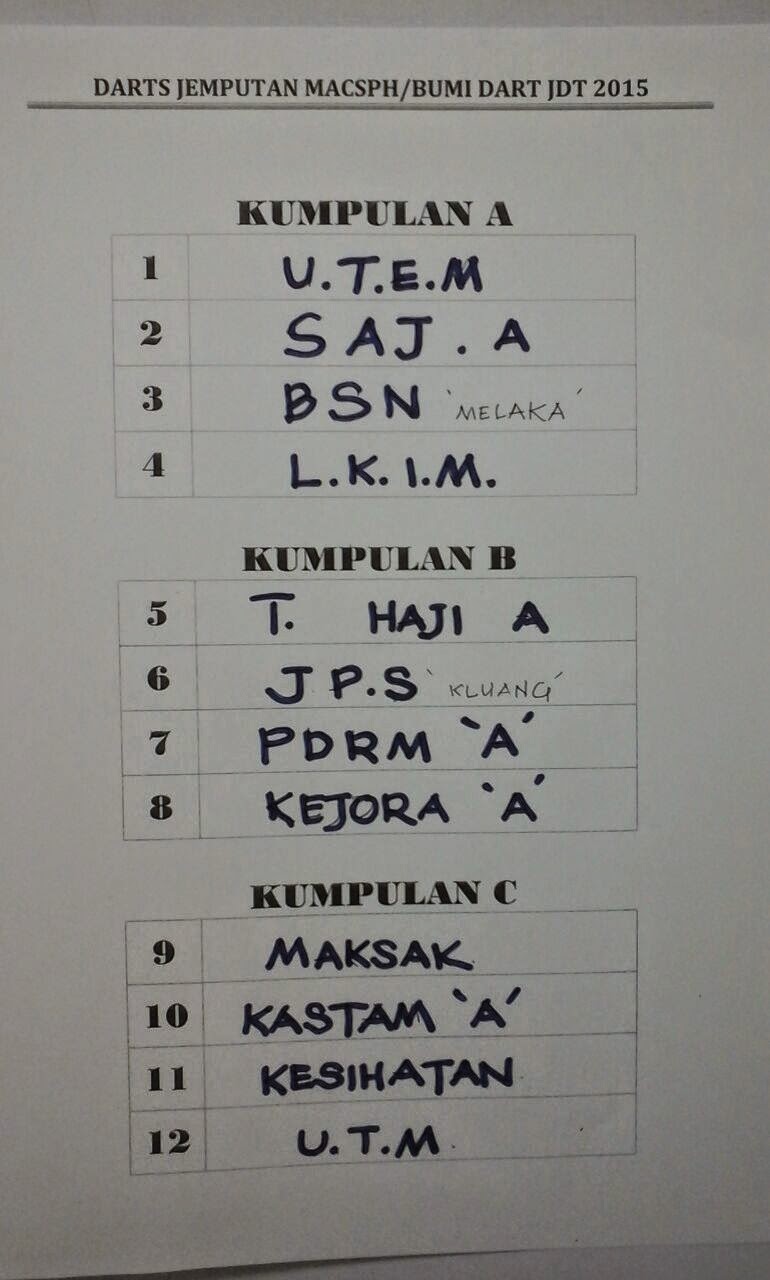 DARTS JEMPUTAN MACSPH/BUMI DART JDT 2015
KUMPULAN A
1 U.T.E.M
2 SAJ . A
3 BSN `MELAKA´
4 L.K.I.M.
KUMPULAN B
5 T. HAJI A
6 J P.S `KLUANG´
7 PDRM `A´
8 KEJORA `A´
KUMPULAN C
9 MAKSAK
10 KASTAM `A´
11 KESIHATAN
12 U.T.M.